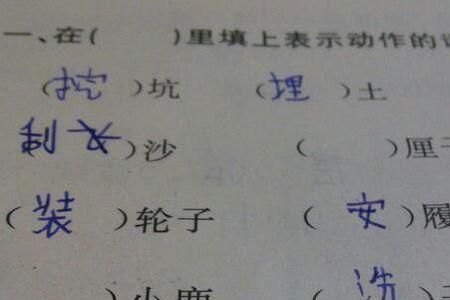 一、在( )里填上表示动作的
(挖)坑 (埋)土
( )沙 ( )厘
(装)轮子 (安)履
)小鹿 (洗)